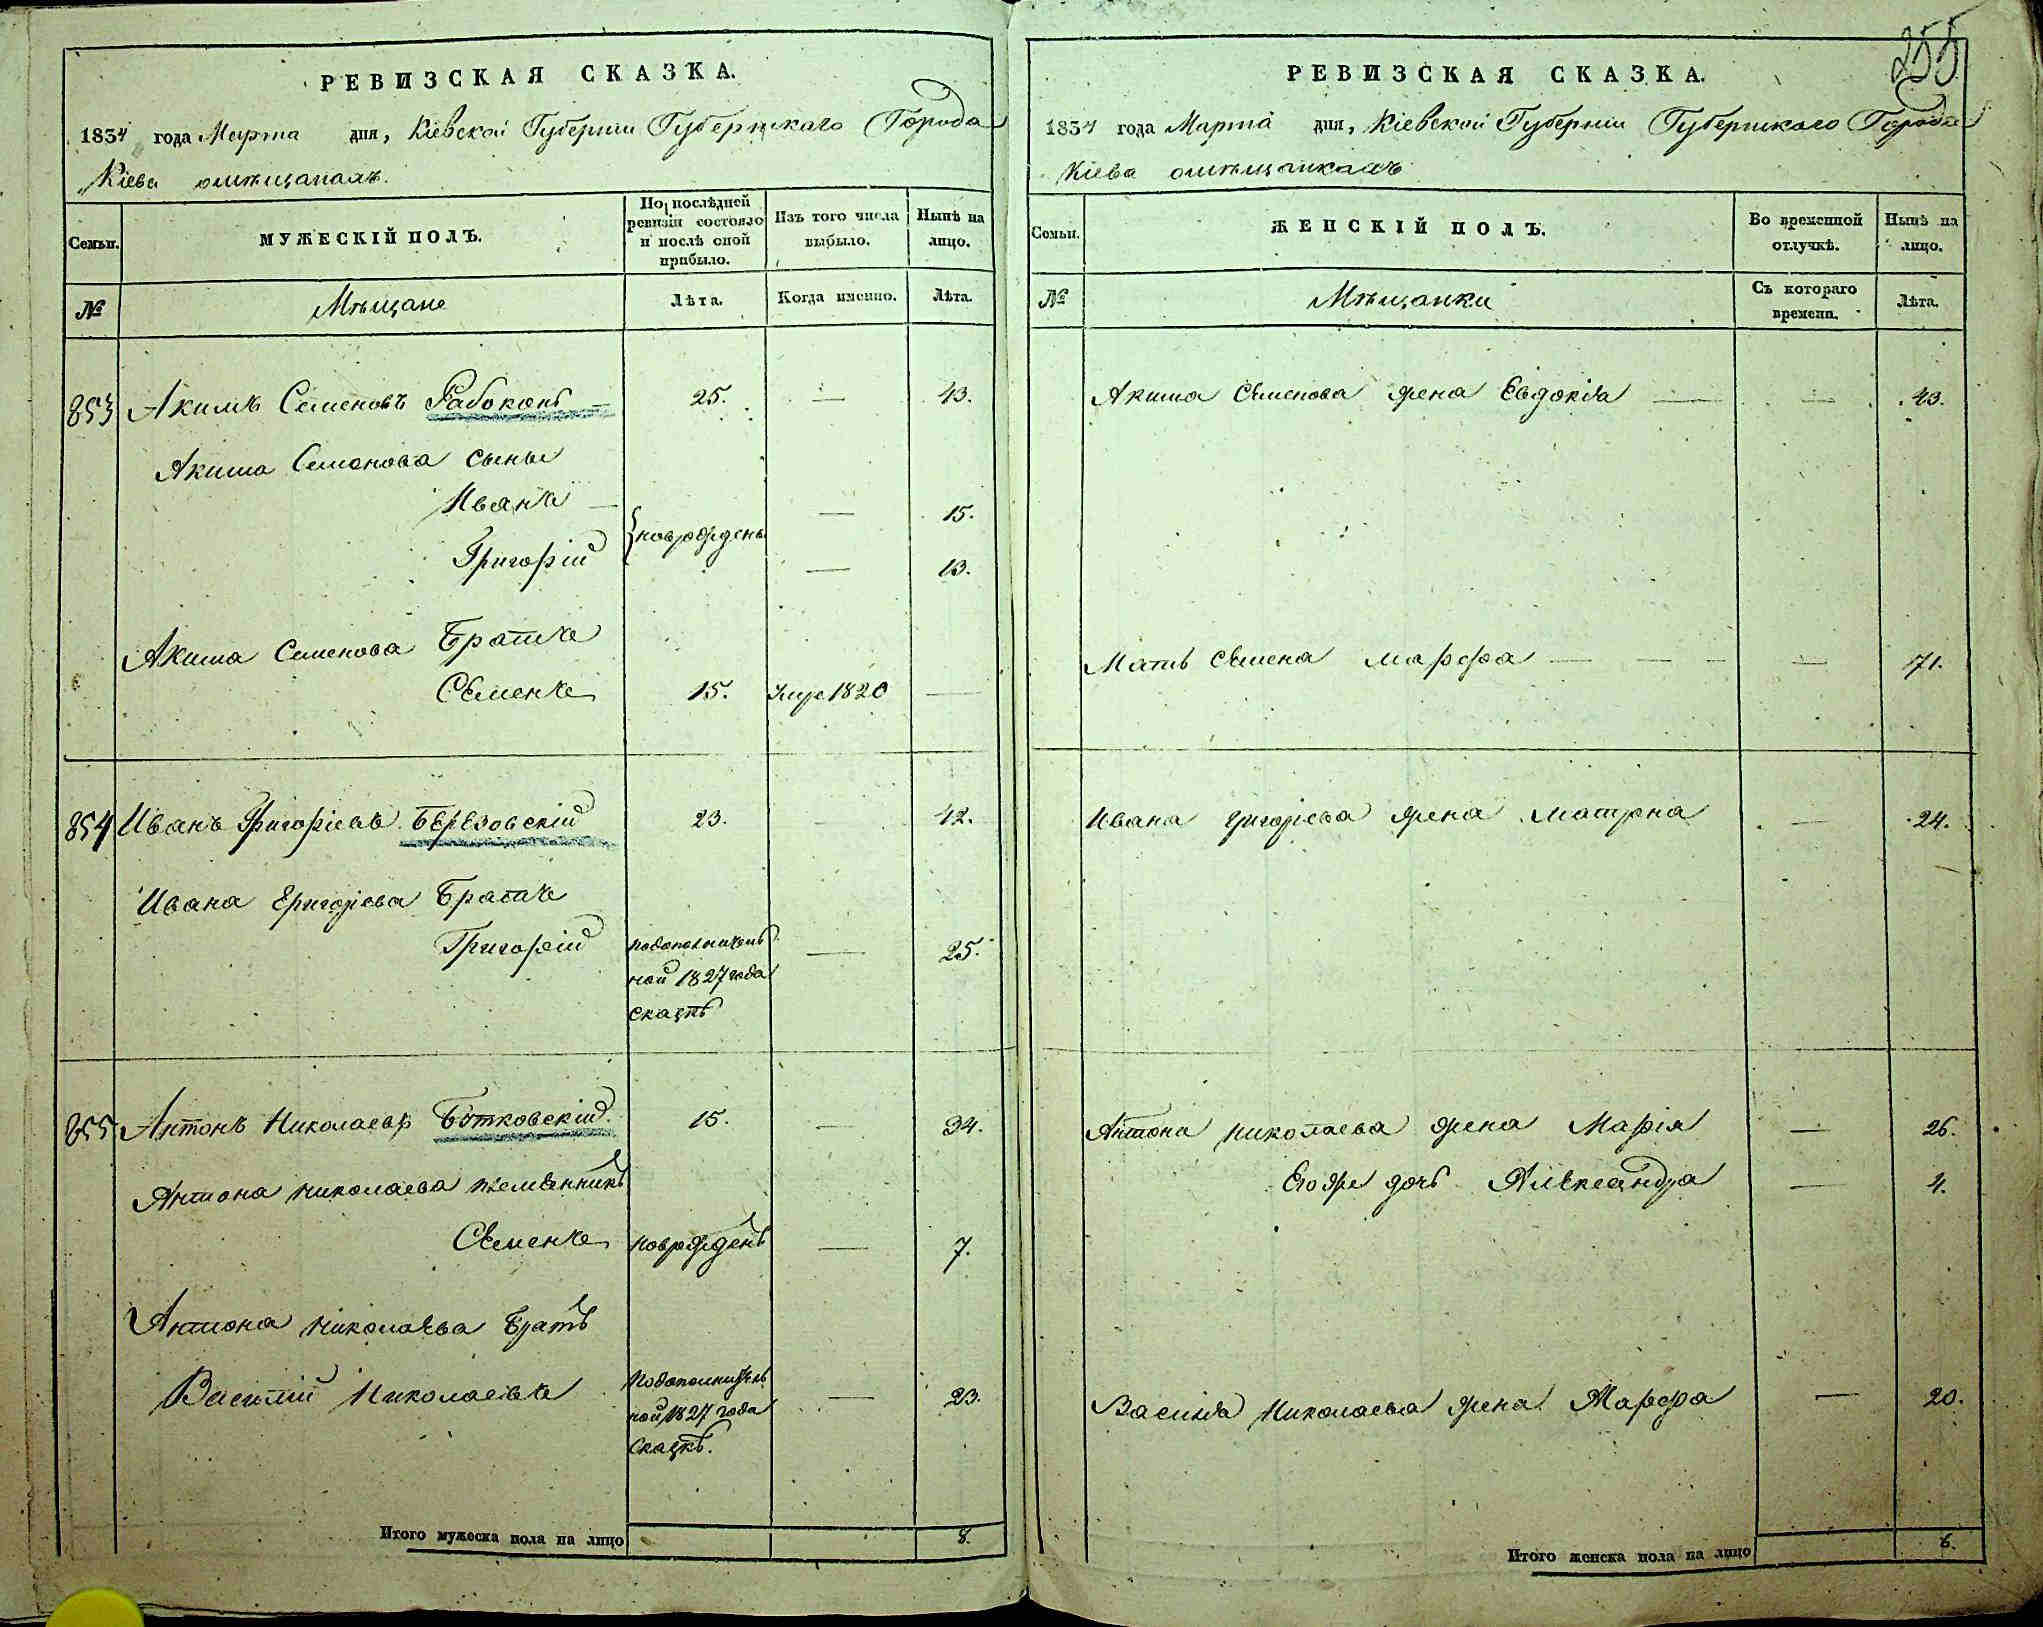 РЕВИЗСКАЯ СКАЗКА.
1834 года Марта дня, Кіевской Губерніи Губернскаго Города
Кіева омѣщанахъ.
Семьи.
МУЖЕСКІЙ ПОЛЪ.
По послѣдней ревизіи состояло и послѣ оной прибыло.
Изъ того числа выбыло.
Нынѣ на лицо.
№
Мѣщане
Лѣта.
Когда именно.
Лѣта.
853 Акимъ Семеновъ Рабоконь 25. — 43.
Акима Семенова сыны
Иванъ — 15.
новрожденъ
Григорій — 13.
Акима Семенова Братъ
Семенъ 15. умре 1820 —
854 Иванъ Григорьевъ Березовскій 23. 42.
Ивана Григорьева Братъ
Григорій подополнитель — 25.
ной 1827 года
сказкѣ
855 Антонъ Николаевъ Бутковскій 15. — 34.
Антона Николаева племенникъ
Семенъ новрожденъ — 7.
Антона Николаева Братъ
Василій Николаевъ подополнитель — 23.
ной 1827 года
сказкѣ.
Итого мужеска пола на лицо 8.
255
РЕВИЗСКАЯ СКАЗКА.
1834 года Марта дня, Кіевской Губерніи Губернскаго Города
Кіева омѣщанкахъ
Семьи.
ЖЕНСКІЙ ПОЛЪ.
Во временной отлучкѣ.
Нынѣ на лицо.
№
Мѣщанки
Съ котораго времени.
Лѣта.
Акима Семенова жена Евдокія — — 43.
Мать Семена Марфа — — — — 71.
Ивана Григорьева жена Матрона — 24.
Антона Николаева жена Марія — 26.
Его же дочь Александра — 4.
Василія Николаева жена Марфа — 20.
Итого женска пола на лицо 6.